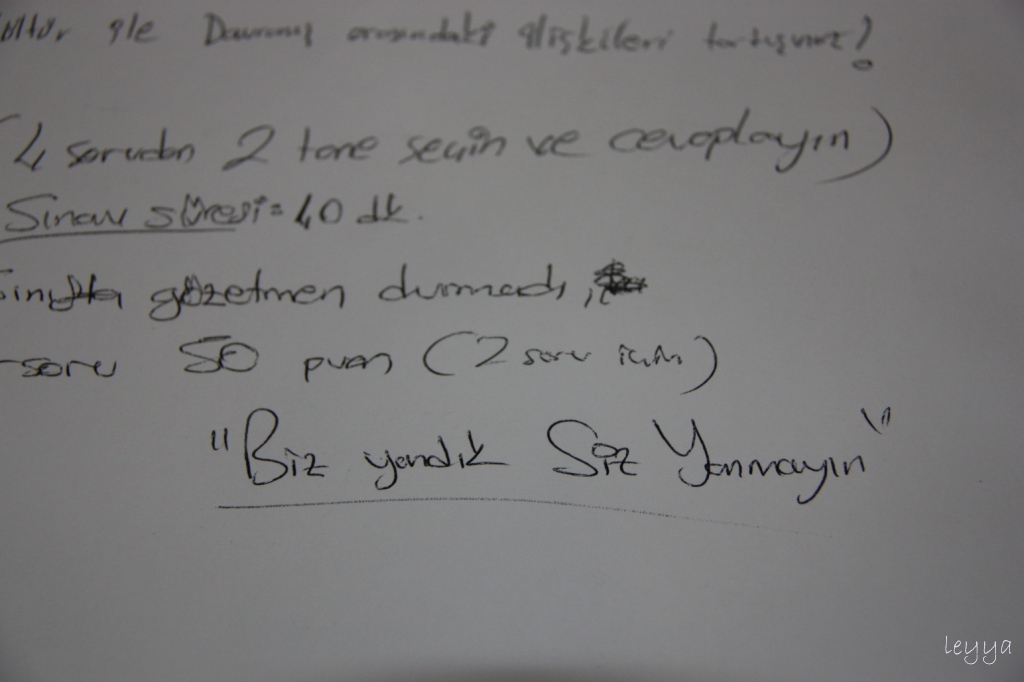 ile Davranış arasındaki ilişkileri tartışınız!
(4 sorudan 2 tane seçin ve cevaplayın)
Sınav süresi = 40 dk.
Sınıfta gözetmen durmadı,
soru 50 puan (2 soru için)
"Biz yandık Siz Yanmayın"
leyya